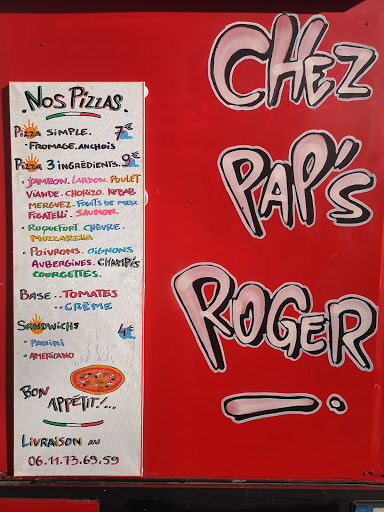 CHEZ
PAP'S
ROGER
NOS PIZZAS.
PIZZA SIMPLE. 7€
. FROMAGE. ANCHOIS
PIZZA 3 INGRÉDIENTS. 9€
. JAMBON. LARDON. POULET
VIANDE. CHORIZO. KEBAB
MERGUEZ. FRUITS DE MER
FIGATELLI. SAUMON.
. ROQUEFORT. CHÈVRE.
MOZZARELLA
. POIVRONS. OIGNONS
AUBERGINES. CHAMPI'S
COURGETTES.
BASE.. TOMATES
.. CRÈME
SANDWICHS 4€
. PANINI
. AMERICANO
BON
APPÉTIT!...
LIVRAISON AU
06.11.73.69.59